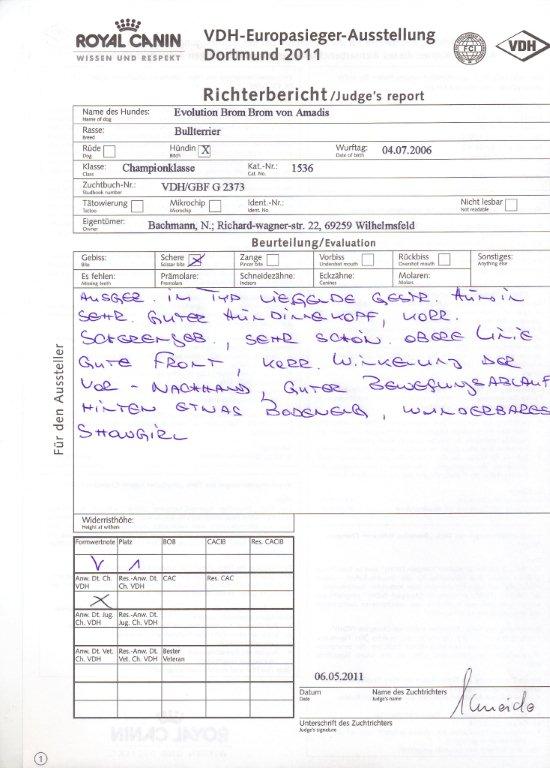 ROYAL CANIN
WISSEN UND RESPEKT
VDH-Europasieger-Ausstellung
Dortmund 2011
FCI
VDH
Richterbericht/Judge's report
Name des Hundes: Evolution Brom Brom von Amadis
Name of dog
Rasse: Bullterrier
Breed
Rüde Hündin X Wurftag: 04.07.2006
Dog Bitch Date of birth
Klasse: Championklasse Kat.-Nr.: 1536
Class Cat. No.
Zuchtbuch-Nr.: VDH/GBF G 2373
Studbook number
Tätowierung Mikrochip Ident.-Nr.: Nicht lesbar
Tattoo Microchip Ident. No. Not readable
Eigentümer: Bachmann, N.; Richard-wagner-str. 22, 69259 Wilhelmsfeld
Owner
Beurteilung/Evaluation
Gebiss: Schere X Zange Vorbiss Rückbiss Sonstiges:
Bite Scissor bite Pincer bite Undershot mouth Overshot mouth Anything else
Es fehlen: Prämolare: Schneidezähne: Eckzähne: Molaren:
Missing teeth Premolars Indoors Canines Molars
AUSGER. IM TYP LIEGENDE GESTR. HÜNDIN
SEHR. GUTER HÜNDINNENKOPF, KORR.
SCHERENGEB., SEHR SCHÖN. OBERE LINIE
GUTE FRONT, KORR. WINKELUNG DER
VOR - NACHHAND, GUTER BEWEGUNGSABLAUF
HINTEN ETWAS BODENENG, WUNDERBARES
SHOWGIRL
Für den Aussteller
Widerristhöhe:
Height at withers
Formwertnote Platz BOB CACIB Res. CACIB
V 1
Anw. Dt. Ch. VDH Res.-Anw. Dt. Ch. VDH CAC Res. CAC
X
Anw. Dt. Jug. Ch. VDH Res.-Anw. Dt. Jug. Ch. VDH
Anw. Dt. Vet. Ch. VDH Res.-Anw. Dt. Vet. Ch. VDH Bester Veteran
06.05.2011
Datum Name des Zuchtrichters
Date Judge's name
Unterschrift des Zuchtrichters
Judge's signature
1